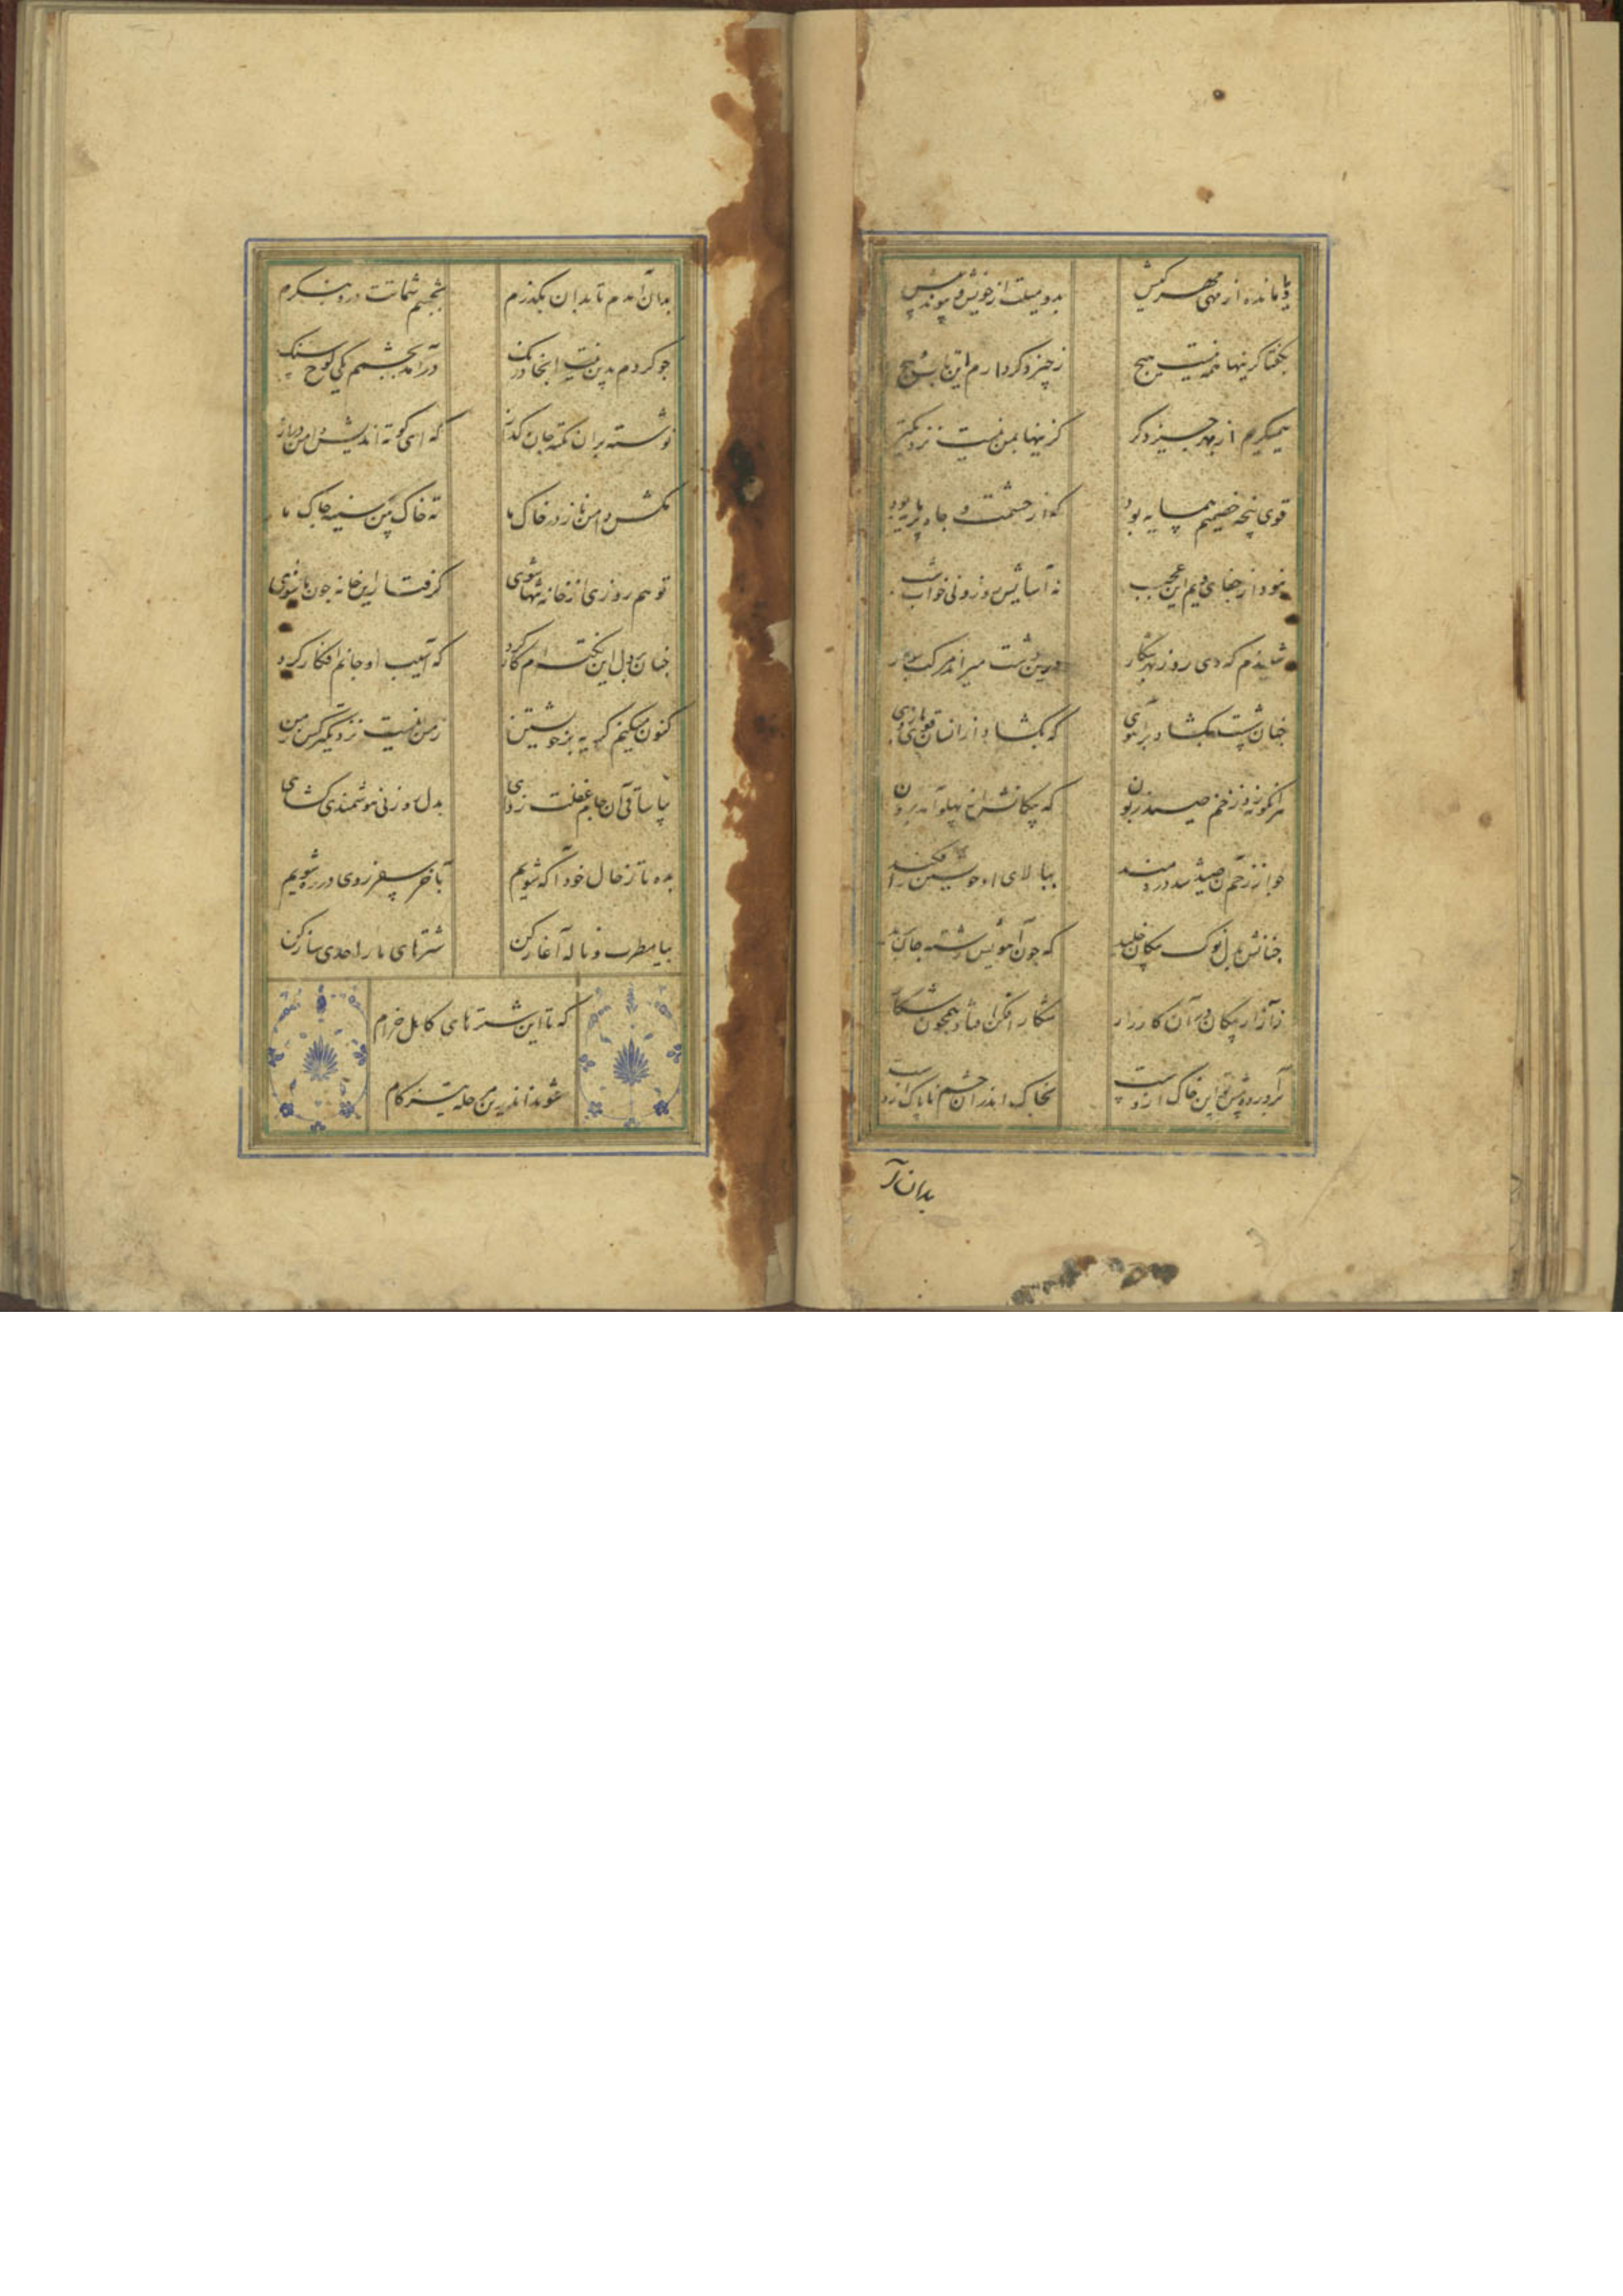 یا مانده از مهی مهر کیش
بدو میلت از خویش و پیوند بیش
بگفتا کزینها همه نیست هیچ
ز چیز دگر دارم این تاب و پیچ
همی‌گریم از بهر چیز دگر
کزینها بمن نیست نزدیکتر
قوی پنجه خصمیم همسایه بود
که از حشمت و جاه پر مایه بود
نبود از جفای ویم این عجب
نه آسایش روز و نی خواب شب
شنیدم که دی روز بهر شکار
درین دشت میراند مرکب سوار
چنان شست بگشاد بر آهوی
که بگشاد ازانسان قوی بازوی
بر آنگونه زد زخم صید زبون
که پیکانش از پهلو آمد برون
چو از زخم آن صید شد دردمند
ببالای او خویشتن را فکند
چنانش بدل نوک پیکان خلید
که چون آهویش رشته جان برید
ز آزار پیکان در آن کارزار
شکار افکن افتاد همچون شکار
برآورده پشته این خاک ازوست
بخاک اندر آن جسم ناپاک ازوست
بدان آ
بدان آمدم تا بدان بگذرم
بچشم شماتت درو بنگرم
چو کردم بدین نیت اینجا درنگ
درآمد بچشمم یکی لوح سنگ
نوشته بران نکته جان گداز
که ای کوته اندیش دامن دراز
مکش دامن ناز در خاک ما
ته خاک بین سینه چاک ما
تو هم روزی از خانه تنها شوی
گرفتار این خانه چون ما شوی
چنان بر دل این نکته‌ام کار کرد
که آسیب او جانم افکار کرد
کنون میکنم گریه بر خویشتن
ز من نیست نزدیکتر کس بمن
بیا ساقی آن جام غفلت زدای
بدل روزنی هوشمندی گشای
بده تا ز حال خود آگه شویم
بآخر سفر روی در ره شویم
بیا مطرب و ناله آغاز کن
شترهای ما را حدی ساز کن
که تا این شترهای کاهل خرام
شوند اندرین مرحله تیز گام